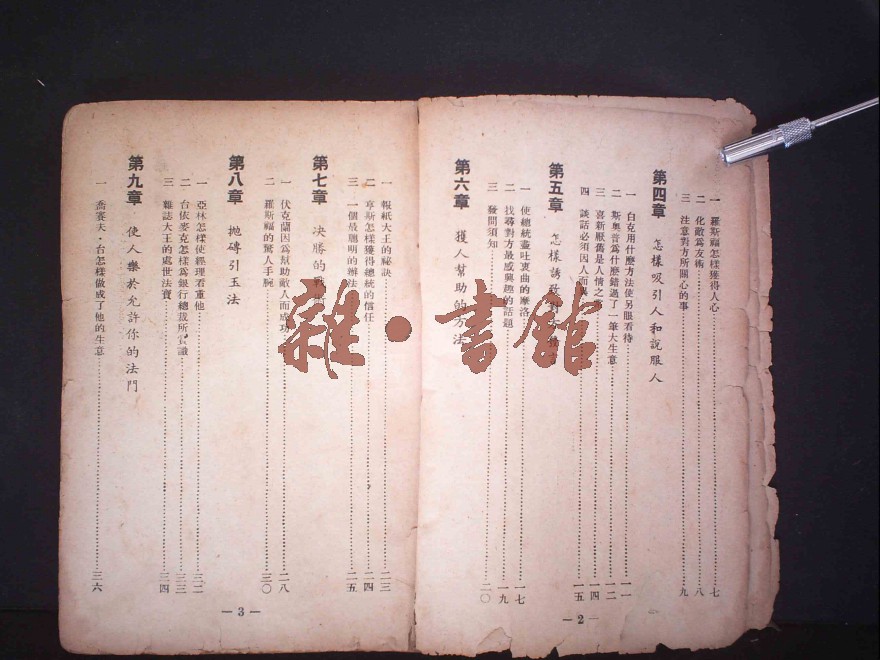 一 羅斯福怎樣獲得人心……七
二 化敵為友術……八
三 注意對方所關心的事……九
第四章 怎樣吸引人和說服人
一 白克用什麼方法使另眼看待……一一
二 斯奧普為什麼錯過了一筆大生意……一二
三 喜新厭舊是人情之……一四
四 談話必須因人而異……一五
第五章 怎樣誘致對方
一 使總統盡吐衷曲的摩洛……一七
二 找尋對方最感興趣的話題……一九
三 發問須知……二〇
第六章 獲人幫助的方法
— 2 —
一 報紙大王的秘訣……二三
二 亨斯怎樣獲得總統的信任……二四
三 一個最聰明的辦法……二五
第七章 决勝的戰
一 伏克蘭因為幫助敵人而成功……二八
二 羅斯福的驚人手腕……三〇
第八章 拋磚引玉法
一 亞林怎樣使經理看重他……三二
二 台依麥克怎樣為銀行總裁所賞識……三三
三 雜誌大王的處世法寶……三四
第九章 使人樂於允許你的法門
一 喬賽夫·台怎樣做成了他的生意……三六
— 3 —
雜·書館